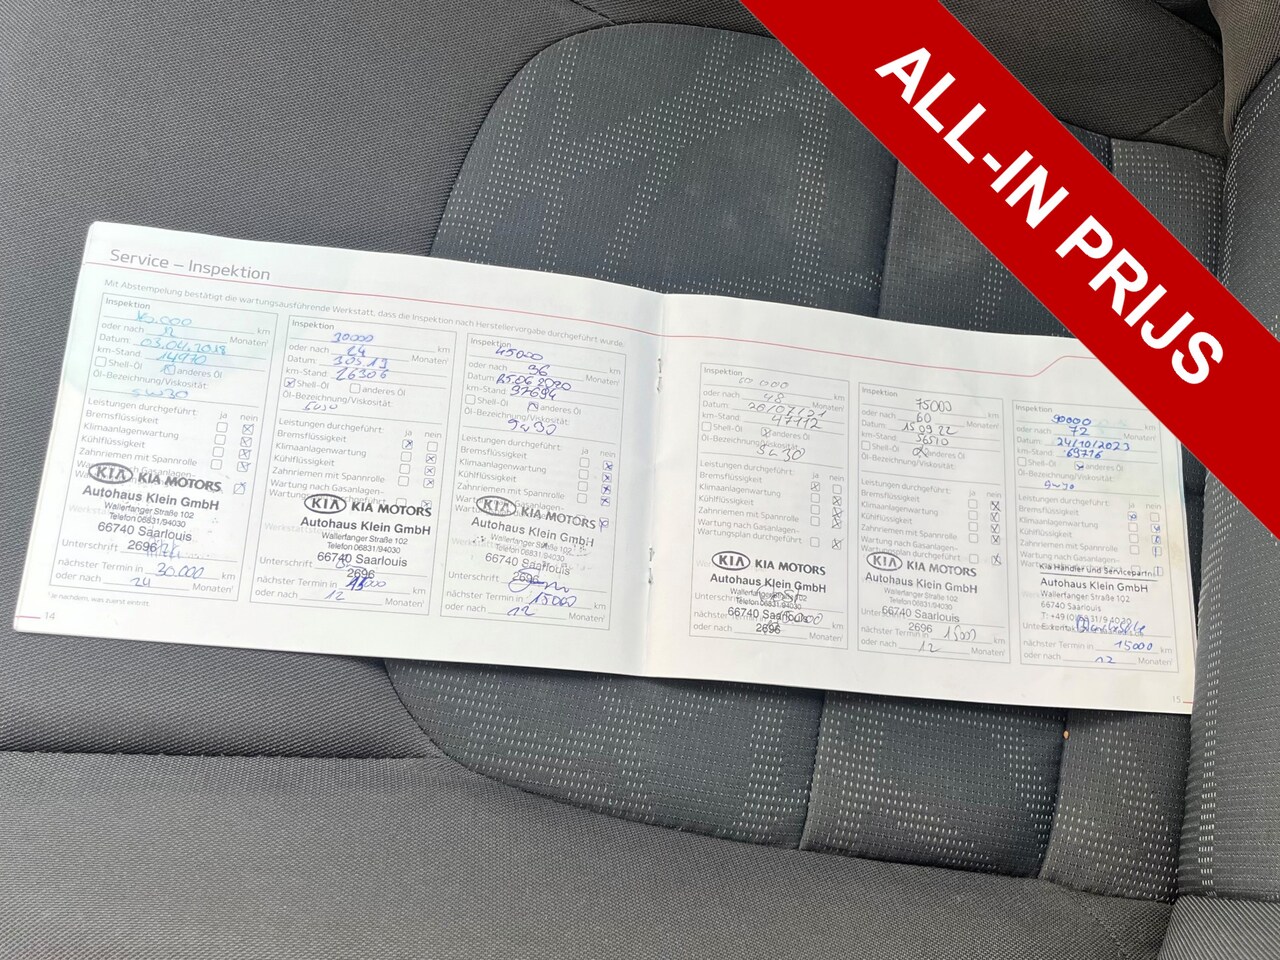 ALL-IN PRIJS
Service – Inspektion
Mit Abstempelung bestätigt die wartungsausführende Werkstatt, dass die Inspektion nach Herstellervorgabe durchgeführt wurde.
Inspektion
km
oder nach Monaten¹
Datum 03.04.2018
km-Stand 14970
Shell-Öl anderes Öl
Öl-Bezeichnung/Viskosität:
5W30
Leistungen durchgeführt: ja nein
Bremsflüssigkeit
Klimaanlagenwartung
Kühlflüssigkeit
Zahnriemen mit Spannrolle
Wartung nach Gasanlagen-
KIA KIA MOTORS
Autohaus Klein GmbH
Wallerfanger Straße 102
Telefon 06831/94030
66740 Saarlouis
2696
Unterschrift
nächster Termin in 30.000 km
oder nach 24 Monaten¹
¹ Je nachdem, was zuerst eintritt.
14
Inspektion
30000 km
oder nach 24 Monaten¹
Datum
km-Stand 26306
Shell-Öl anderes Öl
Öl-Bezeichnung/Viskosität:
Leistungen durchgeführt: ja nein
Bremsflüssigkeit
Klimaanlagenwartung
Kühlflüssigkeit
Zahnriemen mit Spannrolle
Wartung nach Gasanlagen-
KIA KIA MOTORS
Autohaus Klein GmbH
Wallerfanger Straße 102
Telefon 06831/94030
66740 Saarlouis
2696
Unterschrift
nächster Termin in km
oder nach 12 Monaten¹
Inspektion
45000 km
oder nach 36 Monaten¹
Datum
km-Stand
Shell-Öl anderes Öl
Öl-Bezeichnung/Viskosität:
Leistungen durchgeführt: ja nein
Bremsflüssigkeit
Klimaanlagenwartung
Kühlflüssigkeit
Zahnriemen mit Spannrolle
Wartung nach Gasanlagen-
KIA KIA MOTORS
Autohaus Klein GmbH
Wallerfanger Straße 102
66740 Saarlouis
2696
Unterschrift
nächster Termin in 15000 km
oder nach 12 Monaten¹
Inspektion
60 000 km
oder nach 48 Monaten¹
Datum 26/07/21
km-Stand 47112
Shell-Öl anderes Öl
Öl-Bezeichnung/Viskosität:
5W30
Leistungen durchgeführt: ja nein
Bremsflüssigkeit
Klimaanlagenwartung
Kühlflüssigkeit
Zahnriemen mit Spannrolle
Wartung nach Gasanlagen-
Wartungsplan durchgeführt
KIA KIA MOTORS
Autohaus Klein GmbH
Wallerfanger Straße 102
Telefon 06831/94030
66740 Saarlouis
2696
nächster Termin in km
oder nach Monaten¹
Inspektion
75000 km
oder nach 60 Monaten¹
Datum 15.09.22
km-Stand 56510
Shell-Öl anderes Öl
Öl-Bezeichnung/Viskosität:
Leistungen durchgeführt: ja nein
Bremsflüssigkeit
Klimaanlagenwartung
Kühlflüssigkeit
Zahnriemen mit Spannrolle
Wartung nach Gasanlagen-
Wartungsplan durchgeführt
KIA KIA MOTORS
Autohaus Klein GmbH
Wallerfanger Straße 102
Telefon 06831/94030
66740 Saarlouis
2696
nächster Termin in 15000 km
oder nach 12 Monaten¹
Inspektion
90000 km
oder nach 72 Monaten¹
Datum 24/10/2023
km-Stand 69716
Shell-Öl anderes Öl
Öl-Bezeichnung/Viskosität:
5W30
Leistungen durchgeführt: ja nein
Bremsflüssigkeit
Klimaanlagenwartung
Kühlflüssigkeit
Zahnriemen mit Spannrolle
Wartung nach Gasanlagen-
Kia Händler und Servicepartner
Autohaus Klein GmbH
Wallerfanger Straße 102
66740 Saarlouis
T: +49 (0)6831/9 4030
nächster Termin in 15000 km
oder nach 12 Monaten¹
15